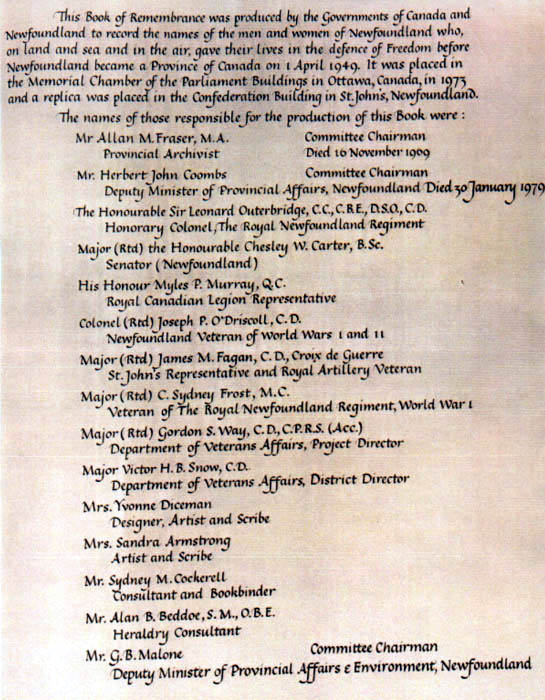 This Book of Remembrance was produced by the Governments of Canada and
Newfoundland to record the names of the men and women of Newfoundland who,
on land and sea and in the air, gave their lives in the defence of Freedom before
Newfoundland became a Province of Canada on 1 April 1949. It was placed in
the Memorial Chamber of the Parliament Buildings in Ottawa, Canada, in 1973
and a replica was placed in the Confederation Building in St. John's, Newfoundland.
The names of those responsible for the production of this Book were:
Mr Allan M. Fraser, M.A. Committee Chairman
Provincial Archivist Died 16 November 1969
Mr. Herbert John Coombs Committee Chairman
Deputy Minister of Provincial Affairs, Newfoundland Died 30 January 1979
The Honourable Sir Leonard Outerbridge, C.C., C.B.E., D.S.O., C.D.
Honorary Colonel, The Royal Newfoundland Regiment
Major (Rtd) the Honourable Chesley W. Carter, B.Sc.
Senator (Newfoundland)
His Honour Myles P. Murray, Q.C.
Royal Canadian Legion Representative
Colonel (Rtd) Joseph P. O'Driscoll, C.D.
Newfoundland Veteran of World Wars I and II
Major (Rtd) James M. Fagan, C.D., Croix de Guerre
St. John's Representative and Royal Artillery Veteran
Major (Rtd) C. Sydney Frost, M.C.
Veteran of The Royal Newfoundland Regiment, World War I
Major (Rtd) Gordon S. Way, C.D., C.P.R.S. (Acc.)
Department of Veterans Affairs, Project Director
Major Victor H. B. Snow, C.D.
Department of Veterans Affairs, District Director
Mrs. Yvonne Diceman
Designer, Artist and Scribe
Mrs. Sandra Armstrong
Artist and Scribe
Mr. Sydney M. Cockerell
Consultant and Bookbinder
Mr. Alan B. Beddoe, S.M., O.B.E.
Heraldry Consultant
Mr. G. B. Malone Committee Chairman
Deputy Minister of Provincial Affairs & Environment, Newfoundland